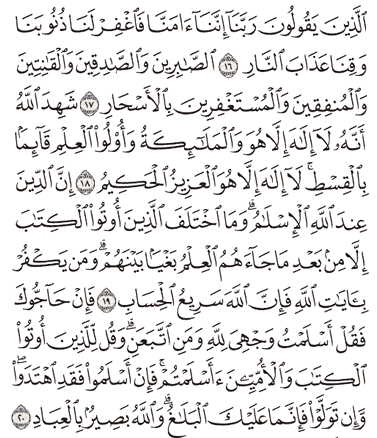 ٱلَّذِينَ يَقُولُونَ رَبَّنَآ إِنَّنَآ ءَامَنَّا فَٱغْفِرْ لَنَا ذُنُوبَنَا
وَقِنَا عَذَابَ ٱلنَّارِ ١٦ ٱلصَّٰبِرِينَ وَٱلصَّٰدِقِينَ وَٱلْقَٰنِتِينَ
وَٱلْمُنفِقِينَ وَٱلْمُسْتَغْفِرِينَ بِٱلْأَسْحَارِ ١٧ شَهِدَ ٱللَّهُ
أَنَّهُۥ لَآ إِلَٰهَ إِلَّا هُوَ وَٱلْمَلَٰٓئِكَةُ وَأُو۟لُوا۟ ٱلْعِلْمِ قَآئِمًۢا
بِٱلْقِسْطِ ۚ لَآ إِلَٰهَ إِلَّا هُوَ ٱلْعَزِيزُ ٱلْحَكِيمُ ١٨ إِنَّ ٱلدِّينَ
عِندَ ٱللَّهِ ٱلْإِسْلَٰمُ ۗ وَمَا ٱخْتَلَفَ ٱلَّذِينَ أُوتُوا۟ ٱلْكِتَٰبَ
إِلَّا مِنۢ بَعْدِ مَا جَآءَهُمُ ٱلْعِلْمُ بَغْيًۢا بَيْنَهُمْ ۗ وَمَن يَكْفُرْ
بِـَٔايَٰتِ ٱللَّهِ فَإِنَّ ٱللَّهَ سَرِيعُ ٱلْحِسَابِ ١٩ فَإِنْ حَآجُّوكَ
فَقُلْ أَسْلَمْتُ وَجْهِىَ لِلَّهِ وَمَنِ ٱتَّبَعَنِ ۗ وَقُل لِّلَّذِينَ أُوتُوا۟
ٱلْكِتَٰبَ وَٱلْأُمِّيِّـۧنَ ءَأَسْلَمْتُمْ ۚ فَإِنْ أَسْلَمُوا۟ فَقَدِ ٱهْتَدَوا۟ ۖ
وَّإِن تَوَلَّوْا۟ فَإِنَّمَا عَلَيْكَ ٱلْبَلَٰغُ ۗ وَٱللَّهُ بَصِيرٌۢ بِٱلْعِبَادِ ٢٠